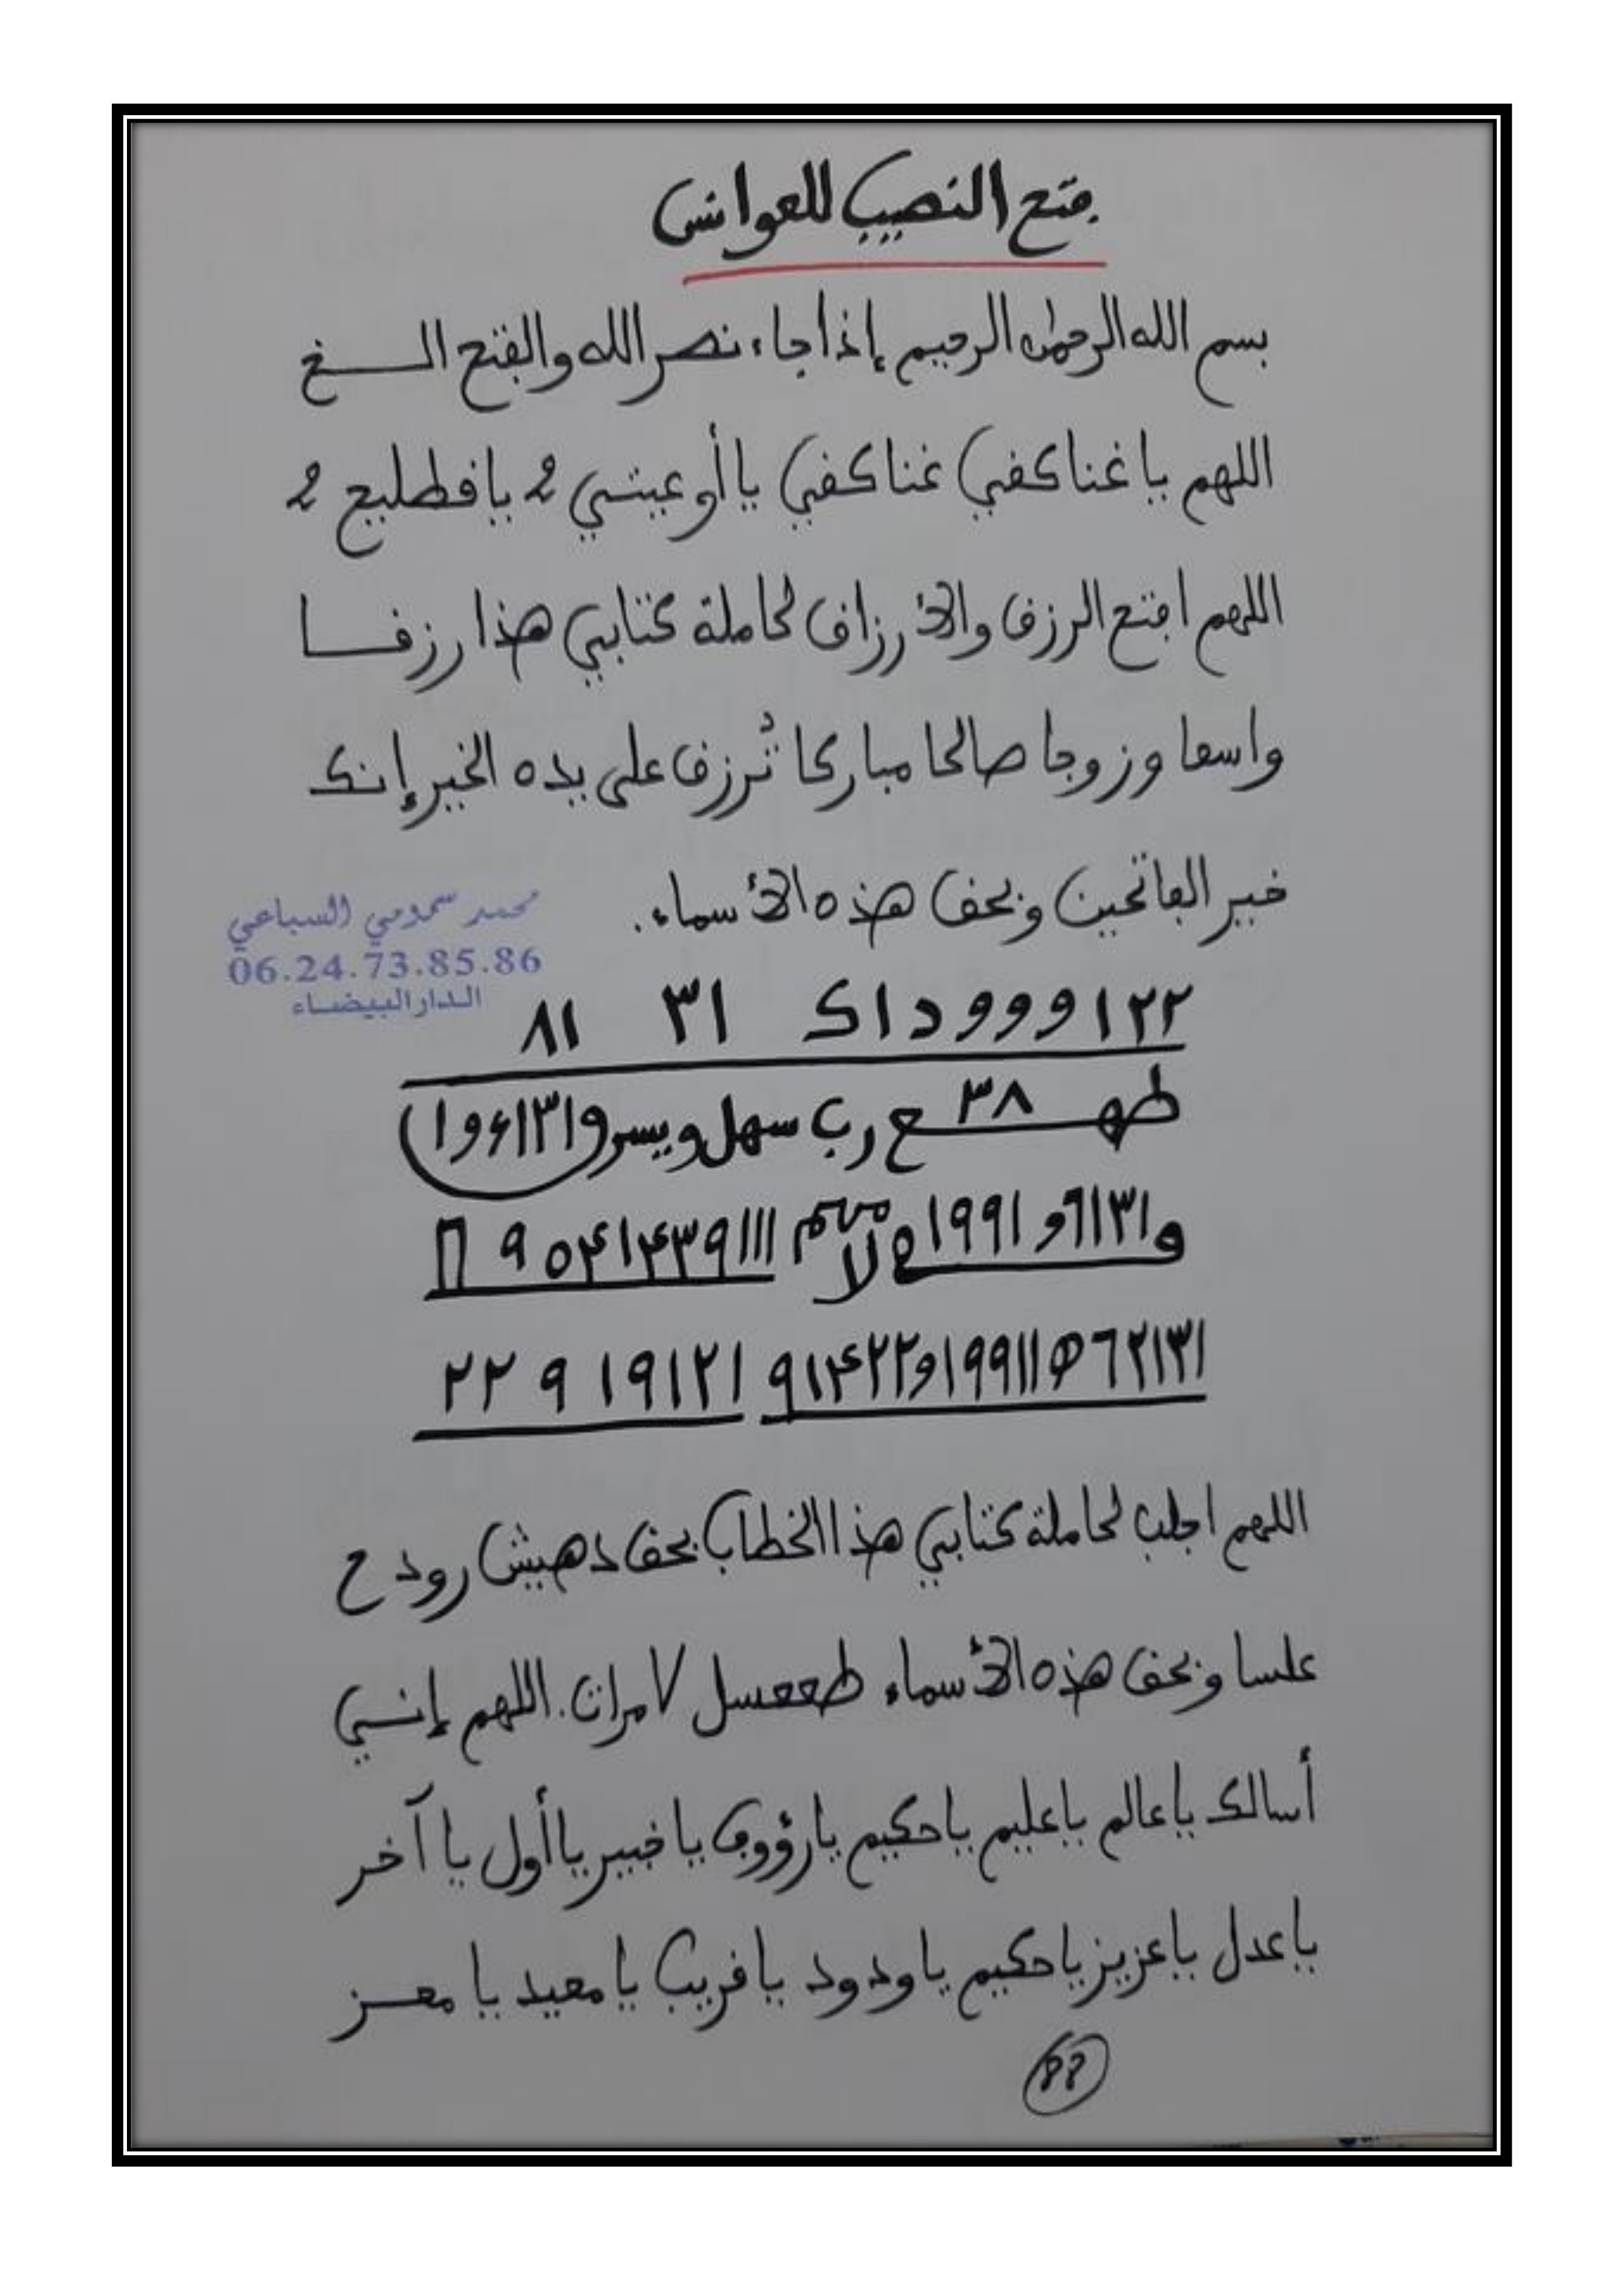 فتح النصيب للعوانس
بسم الله الرحمن الرحيم إذا جاء نصر الله والفتح الـــخ
اللهم يا غناكفي غناكفي يا أوعيشي 2 يا قطليج 2
اللهم افتح الرزق والأرزاق لحاملة كتابي هذا رزقـــا
واسعا وزوجا صالحا مباركا تُرزق على يده الخير إنك
خير الفاتحين وبحق هذه الأسماء.
محمد سمومي السباعي
06.24.73.85.86
الدار البيضاء
١٢٢ و و و د ا ک ٣١ ٨١
طهـ ٣٨ ـع رب سهل ويسر
اللهم اجلب لحاملة كتابي هذا الخطاب بحق دهيش رودح
علسا وبحق هذه الأسماء طععسل لامرات. اللهم إنـي
أسالك يا عالم يا عليم يا حكيم يا رؤوف يا خبير يا أول يا آخر
يا عدل يا عزيز يا حكيم يا ودود يا قريب يا معيد يا معـز